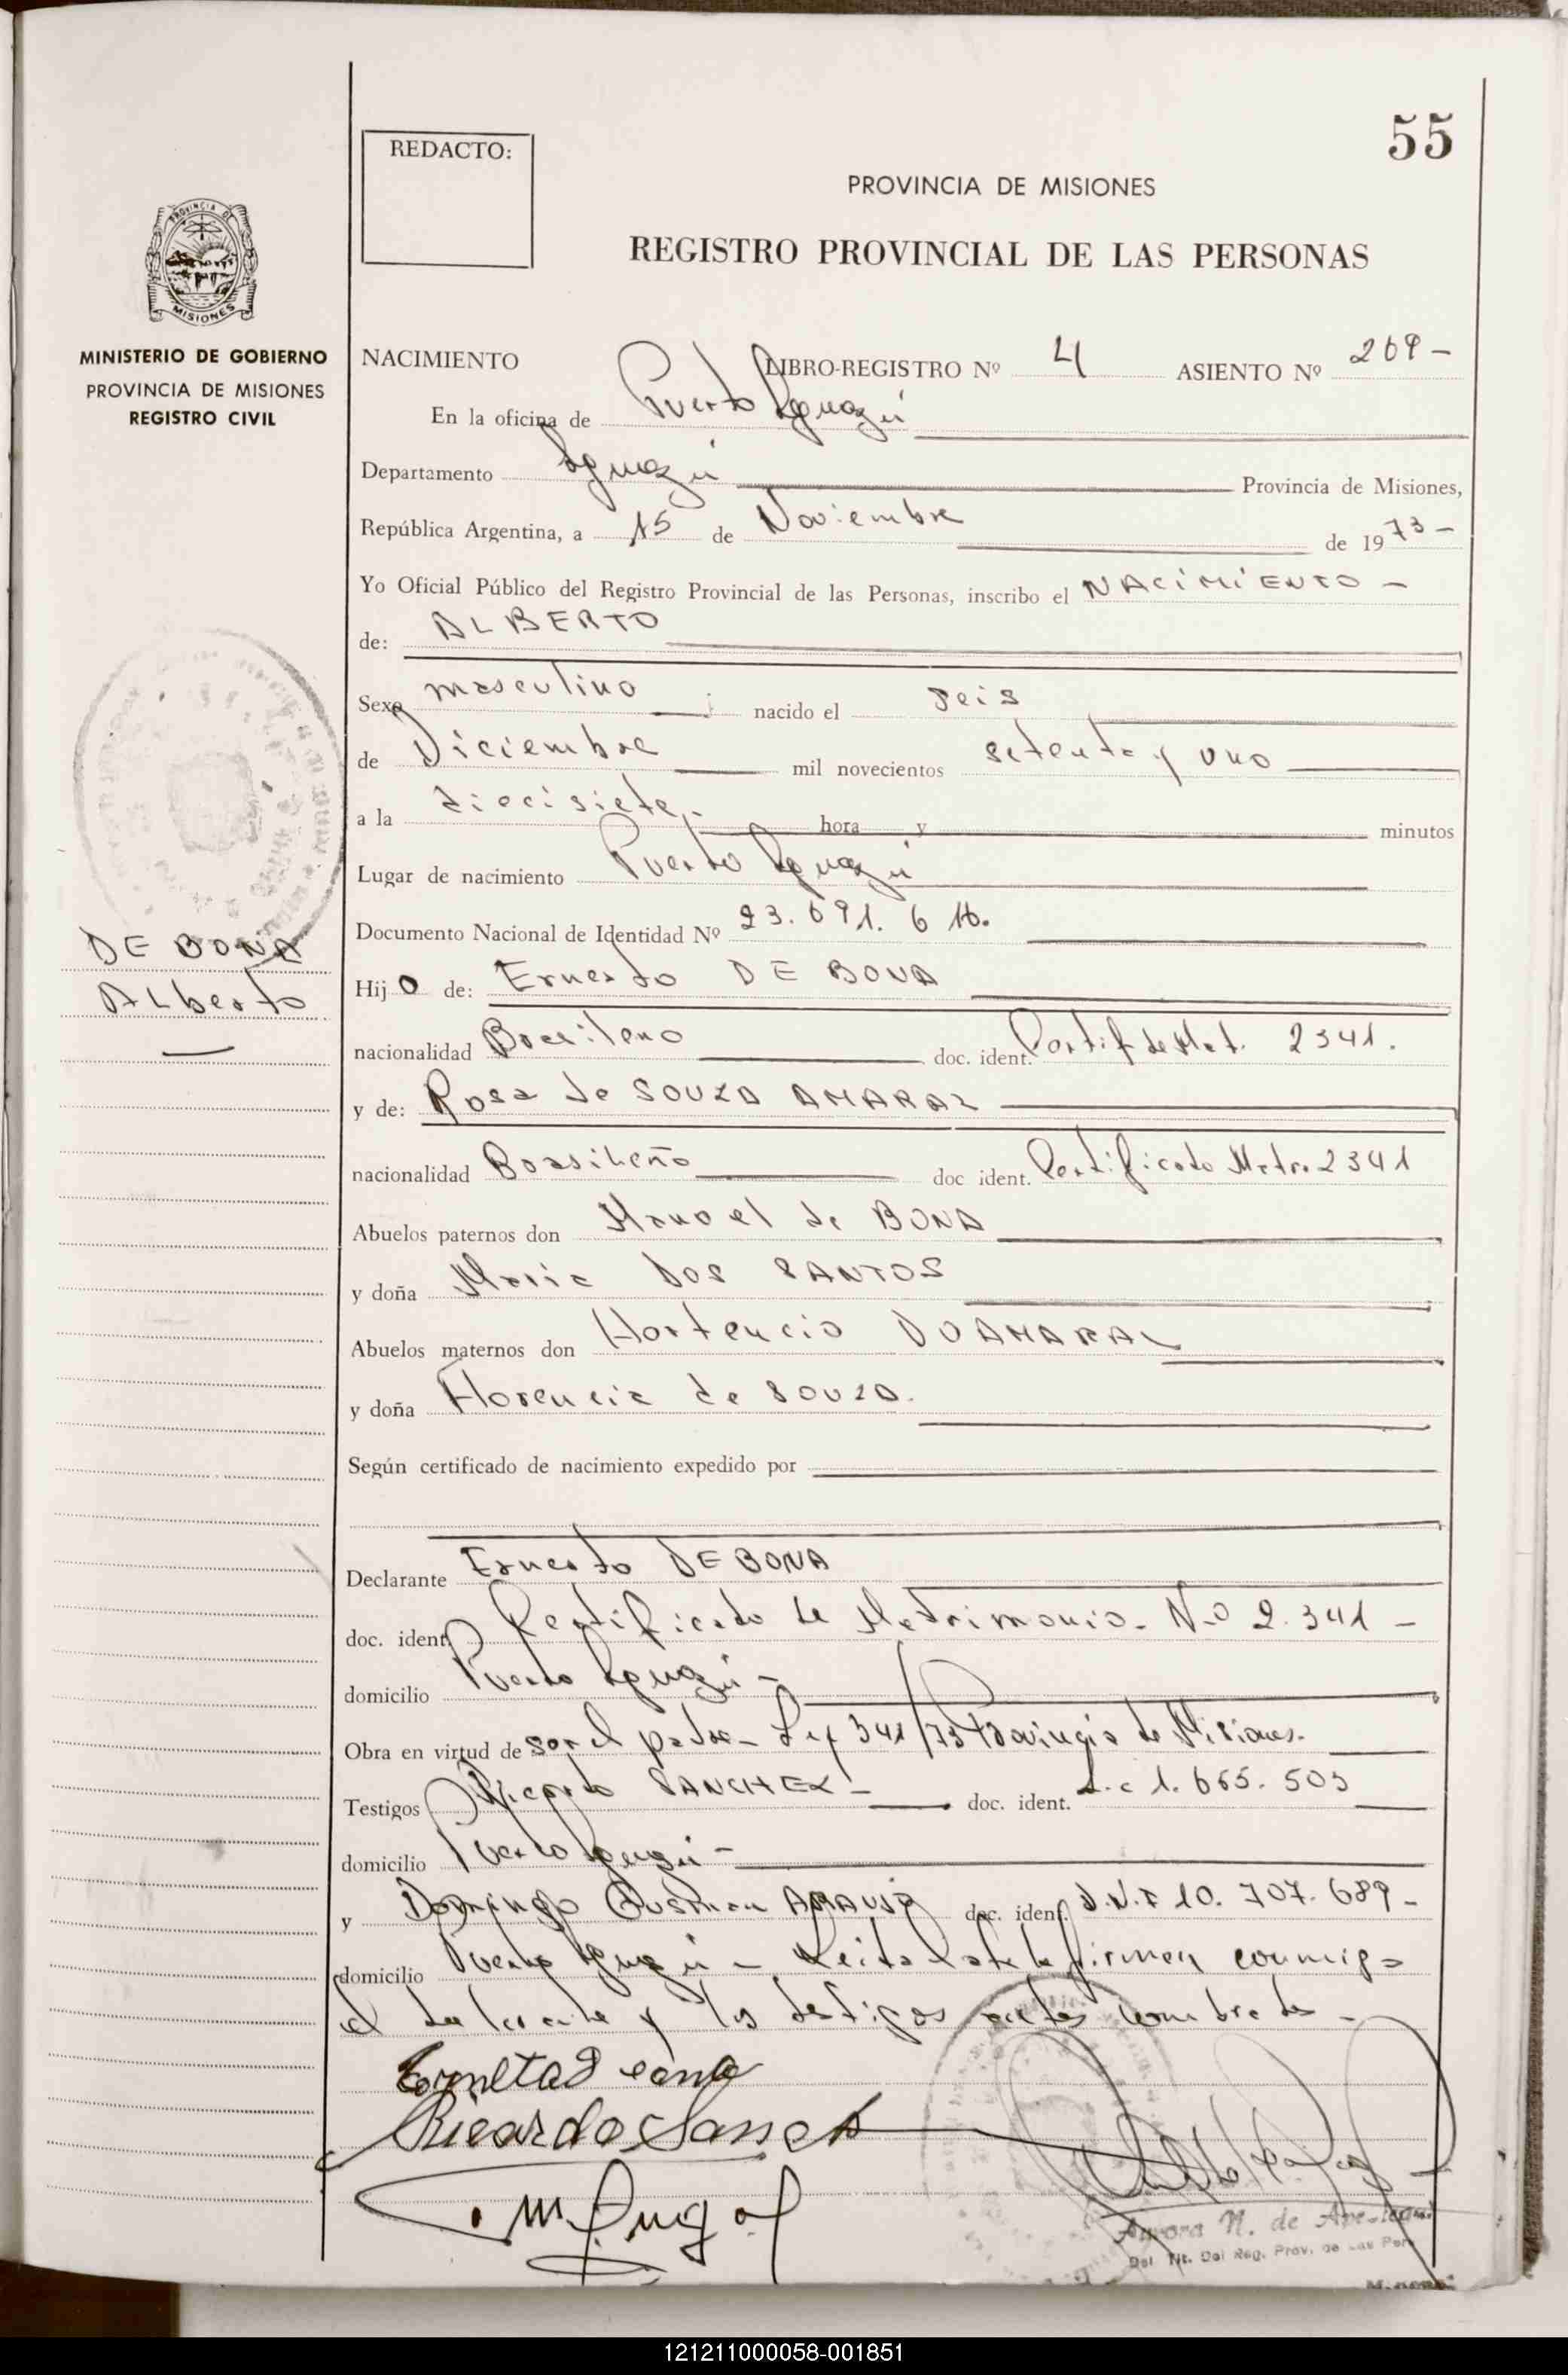 55
REDACTO:
PROVINCIA DE MISIONES
REGISTRO PROVINCIAL DE LAS PERSONAS
PROVINCIA DE
MISIONES
MINISTERIO DE GOBIERNO
PROVINCIA DE MISIONES
REGISTRO CIVIL
DE BONA
Alberto
NACIMIENTO LIBRO-REGISTRO Nº 4 ASIENTO Nº 269-
En la oficina de Puerto Iguazú
Departamento Iguazú Provincia de Misiones,
República Argentina, a 15 de Noviembre de 1973-
Yo Oficial Público del Registro Provincial de las Personas, inscribo el NACIMIENTO-
de: ALBERTO
Sexo masculino nacido el seis
de Diciembre mil novecientos setenta y uno
a la diecisiete.- hora y minutos
Lugar de nacimiento Puerto Iguazú
Documento Nacional de Identidad Nº 23.691.6
Hijo de: Ernesto DE BONA
nacionalidad Brasileno doc. ident. Certif de Mat. 2341.
y de: Rosa de SOUZA AMARAL
nacionalidad Brasileño doc ident. Certificado Matr. 2341
Abuelos paternos don Manoel de BONA
y doña Maria DOS SANTOS
Abuelos maternos don Hortencio DO AMARAL
y doña Florencia de SOUZA.
Según certificado de nacimiento expedido por
Declarante Ernesto DE BONA
doc. ident. Certificado de Matrimonio. Nº 2.341-
domicilio Puerto Iguazú-
Obra en virtud de ser el padre- Ley 341/73 Provincia de Misiones.
Testigos Ricardo SANCHEZ- doc. ident. L.E 1.665.503
domicilio Puerto Iguazú-
y Domingo Gusman ARAUJO doc. ident. D.N.I 10.707.689-
domicilio Puerto Iguazú- Leida el acta la firman conmigo
el declarante y los testigos antes nombrados-
Ricardo
Aurora N. de
Del Tit. Del Reg. Prov. de Las Per
121211000058-001851